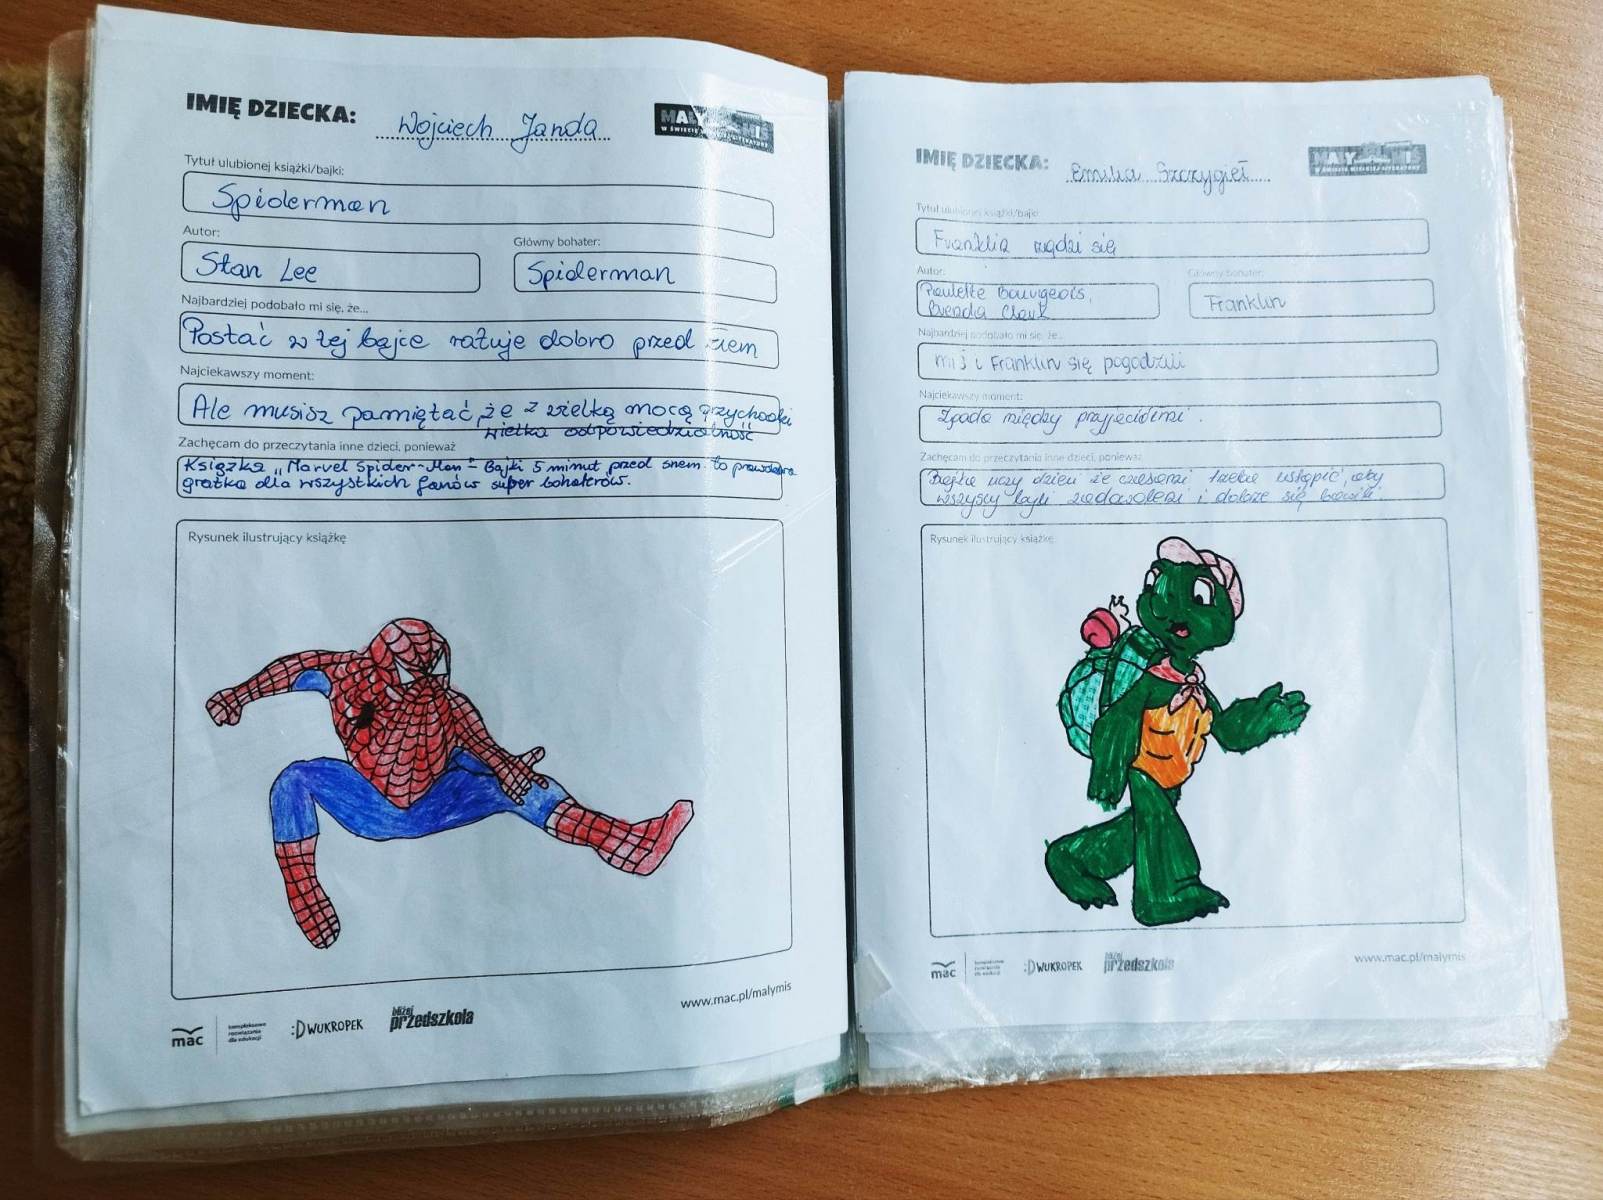 IMIĘ DZIECKA: Wojciech Janda
MAŁY MIŚ
W ŚWIECIE WIELKIEJ LITERATURY
Tytuł ulubionej książki/bajki:
Spiderman
Autor:
Stan Lee
Główny bohater:
Spiderman
Najbardziej podobało mi się, że...
Postać w tej bajce ratuje dobro przed złem
Najciekawszy moment:
Ale musisz pamiętać, że z wielką mocą przychodzi
wielka odpowiedzialność
Zachęcam do przeczytania inne dzieci, ponieważ
Książka „Marvel Spider-Man" - Bajki 5 minut przed snem to prawdziwa
gratka dla wszystkich fanów super bohaterów.
Rysunek ilustrujący książkę
mac
kompleksowe
rozwiązania
dla edukacji
:DWUKROPEK
bliżej
przedszkola
www.mac.pl/malymis
IMIĘ DZIECKA: Emilia Szczygieł
MAŁY MIŚ
W ŚWIECIE WIELKIEJ LITERATURY
Tytuł ulubionej książki/bajki:
Franklin rządzi się
Autor:
Paulette Bourgeois,
Brenda Clark
Główny bohater:
Franklin
Najbardziej podobało mi się, że...
miś i Franklin się pogodzili
Najciekawszy moment:
Zgoda między przyjaciółmi.
Zachęcam do przeczytania inne dzieci, ponieważ
Bajka uczy dzieci że czasami trzeba ustąpić, aby
wszyscy byli zadowoleni i dobrze się bawili.
Rysunek ilustrujący książkę
mac
kompleksowe
rozwiązania
dla edukacji
:DWUKROPEK
bliżej
przedszkola
www.mac.pl/malymis